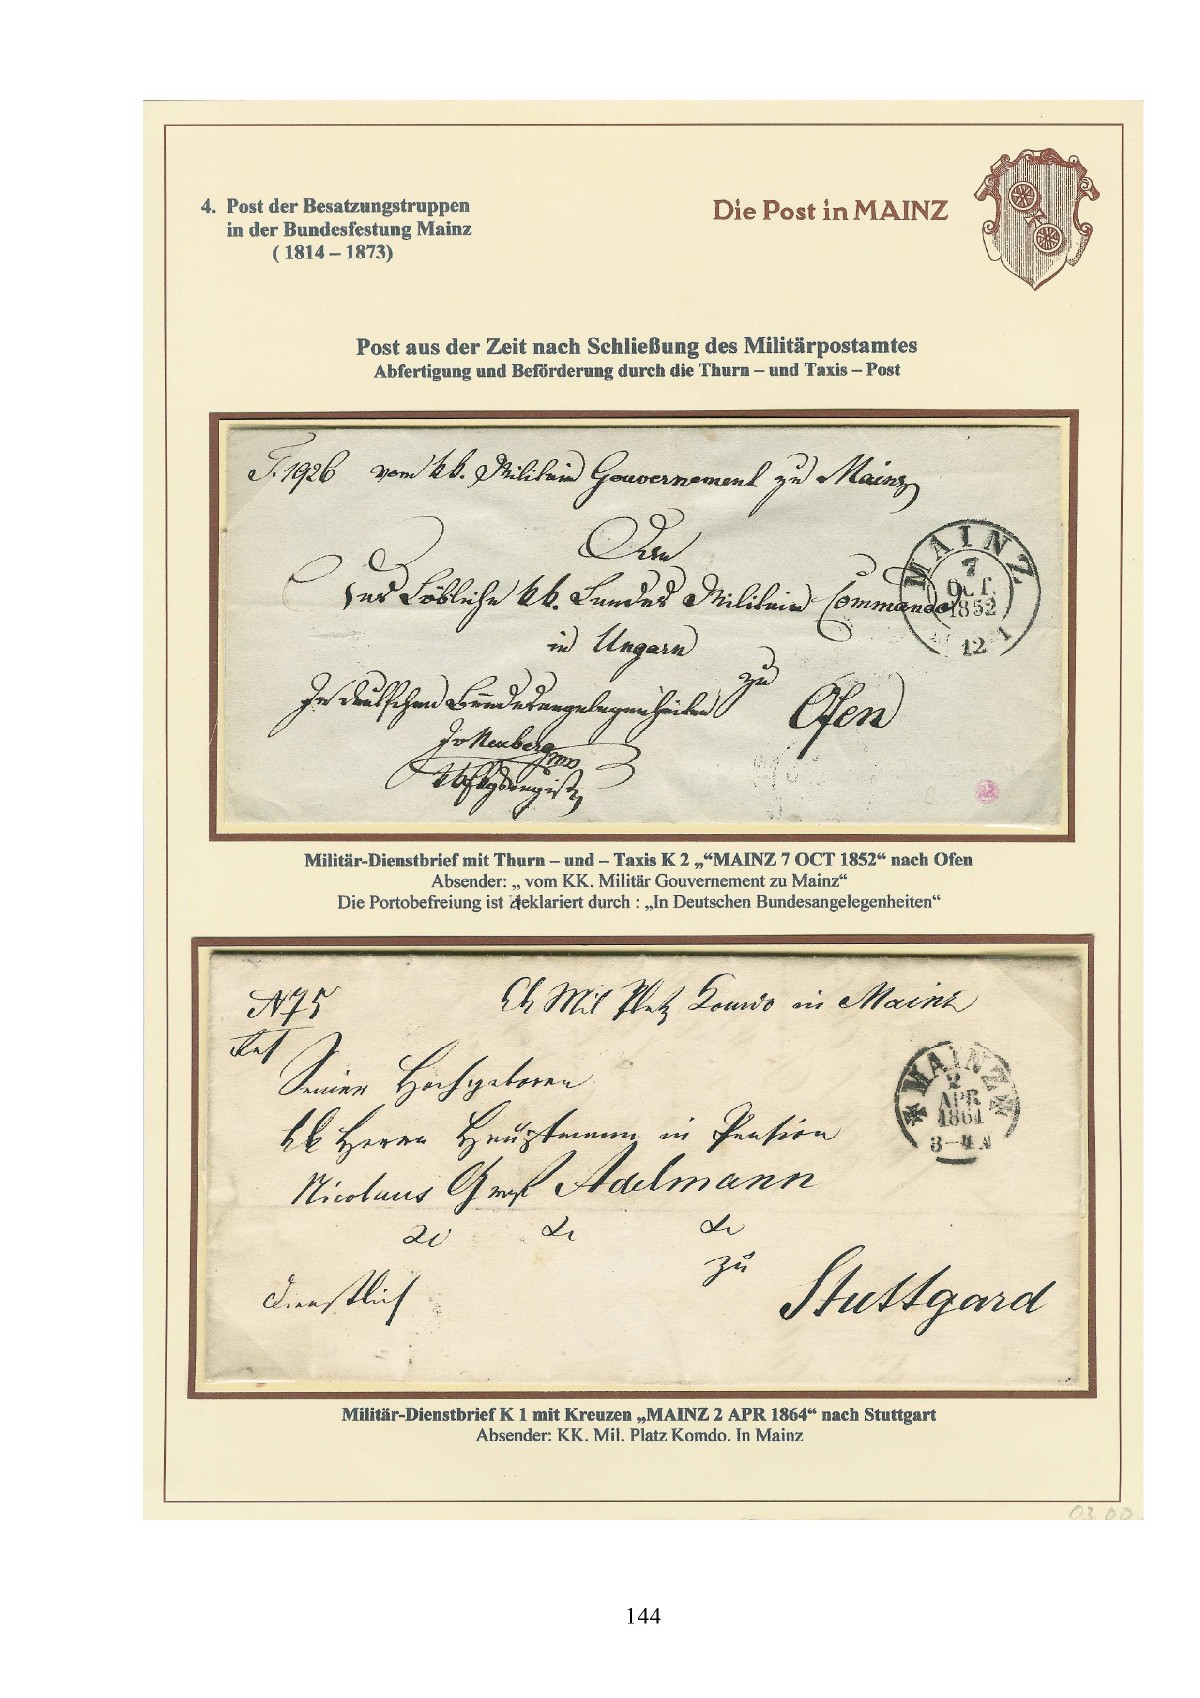 4. Post der Besatzungstruppen
in der Bundesfestung Mainz
( 1814 – 1873)
Die Post in MAINZ
Post aus der Zeit nach Schließung des Militärpostamtes
Abfertigung und Beförderung durch die Thurn – und Taxis – Post
1926 vom kk. Militair Gouvernement zu Mainz
An
Das Löbliche kk. Landes Militair Commando
in Ungarn
zu
In deutschen Bundesangelegenheiten
Ofen
MAINZ
7
OCT.
1852
12-1
Militär-Dienstbrief mit Thurn – und – Taxis K 2 „“MAINZ 7 OCT 1852“ nach Ofen
Absender: „ vom KK. Militär Gouvernement zu Mainz“
Die Portobefreiung ist deklariert durch : „In Deutschen Bundesangelegenheiten“
N 75
Kk Mil Platz Komdo in Mainz
Seiner Hochgeboren
kk Herrn Hauptmann in Pension
Nicolaus Graf Adelmann
zu
Dienstlich
Stuttgard
MAINZ
2
APR
1864
3–4 N
Militär-Dienstbrief K 1 mit Kreuzen „MAINZ 2 APR 1864“ nach Stuttgart
Absender: KK. Mil. Platz Komdo. In Mainz
03.00
144